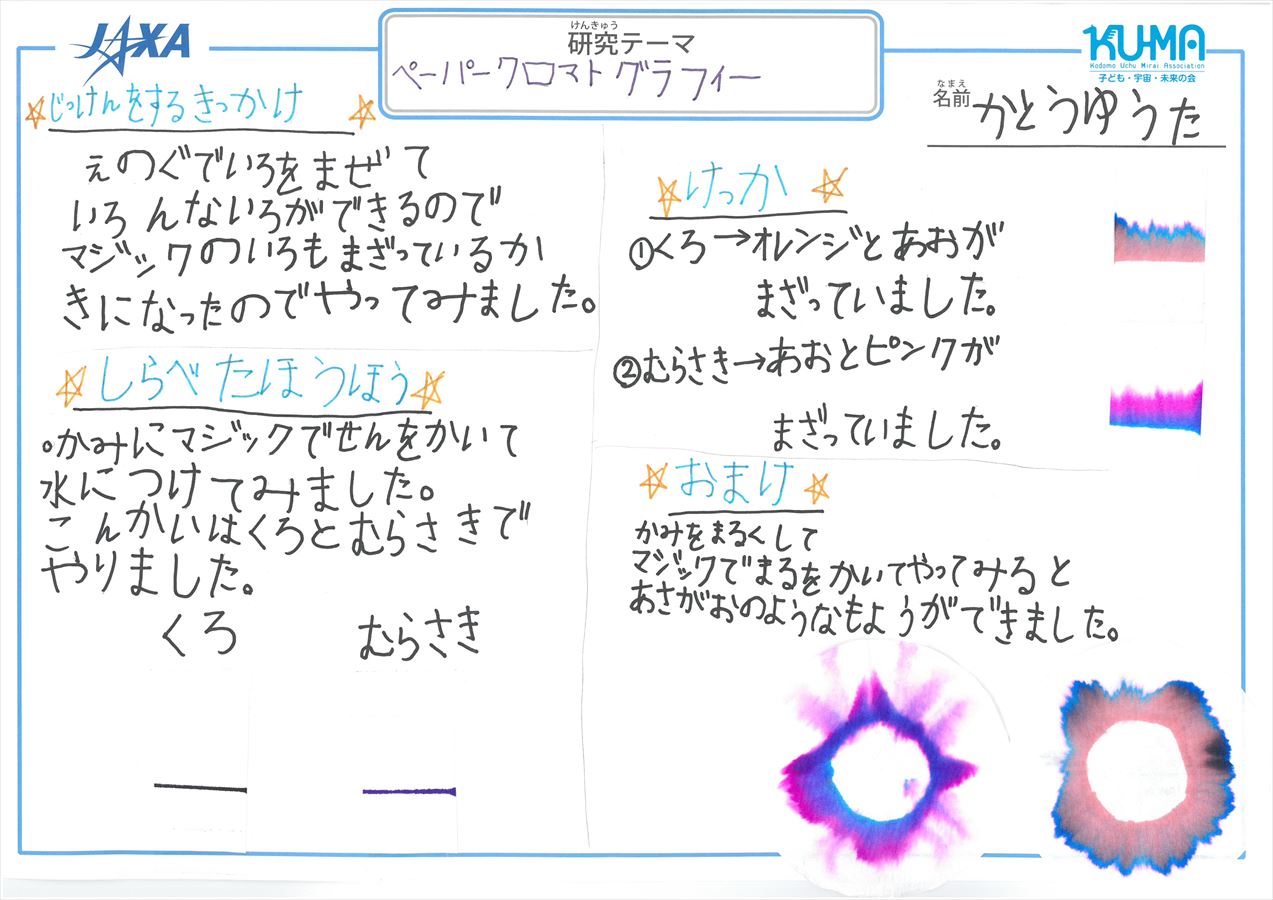 JAXA
けんきゅう
研究テーマ
ペーパークロマトグラフィー
KU-MA
Kodomo Uchu Mirai Association
子ども・宇宙・未来の会
なまえ
名前 かとうゆうた
じっけんをするきっかけ
えのぐでいろをまぜて
いろんないろができるので
マジックのいろもまざっているか
きになったのでやってみました。
しらべたほうほう
・かみにマジックでせんをかいて
水につけてみました。
こんかいはくろとむらさきで
やりました。
くろ むらさき
けっか
①くろ→オレンジとあおが
まざっていました。
②むらさき→あおとピンクが
まざっていました。
おまけ
かみをまるくして
マジックでまるをかいてやってみると
あさがおのようなもようができました。